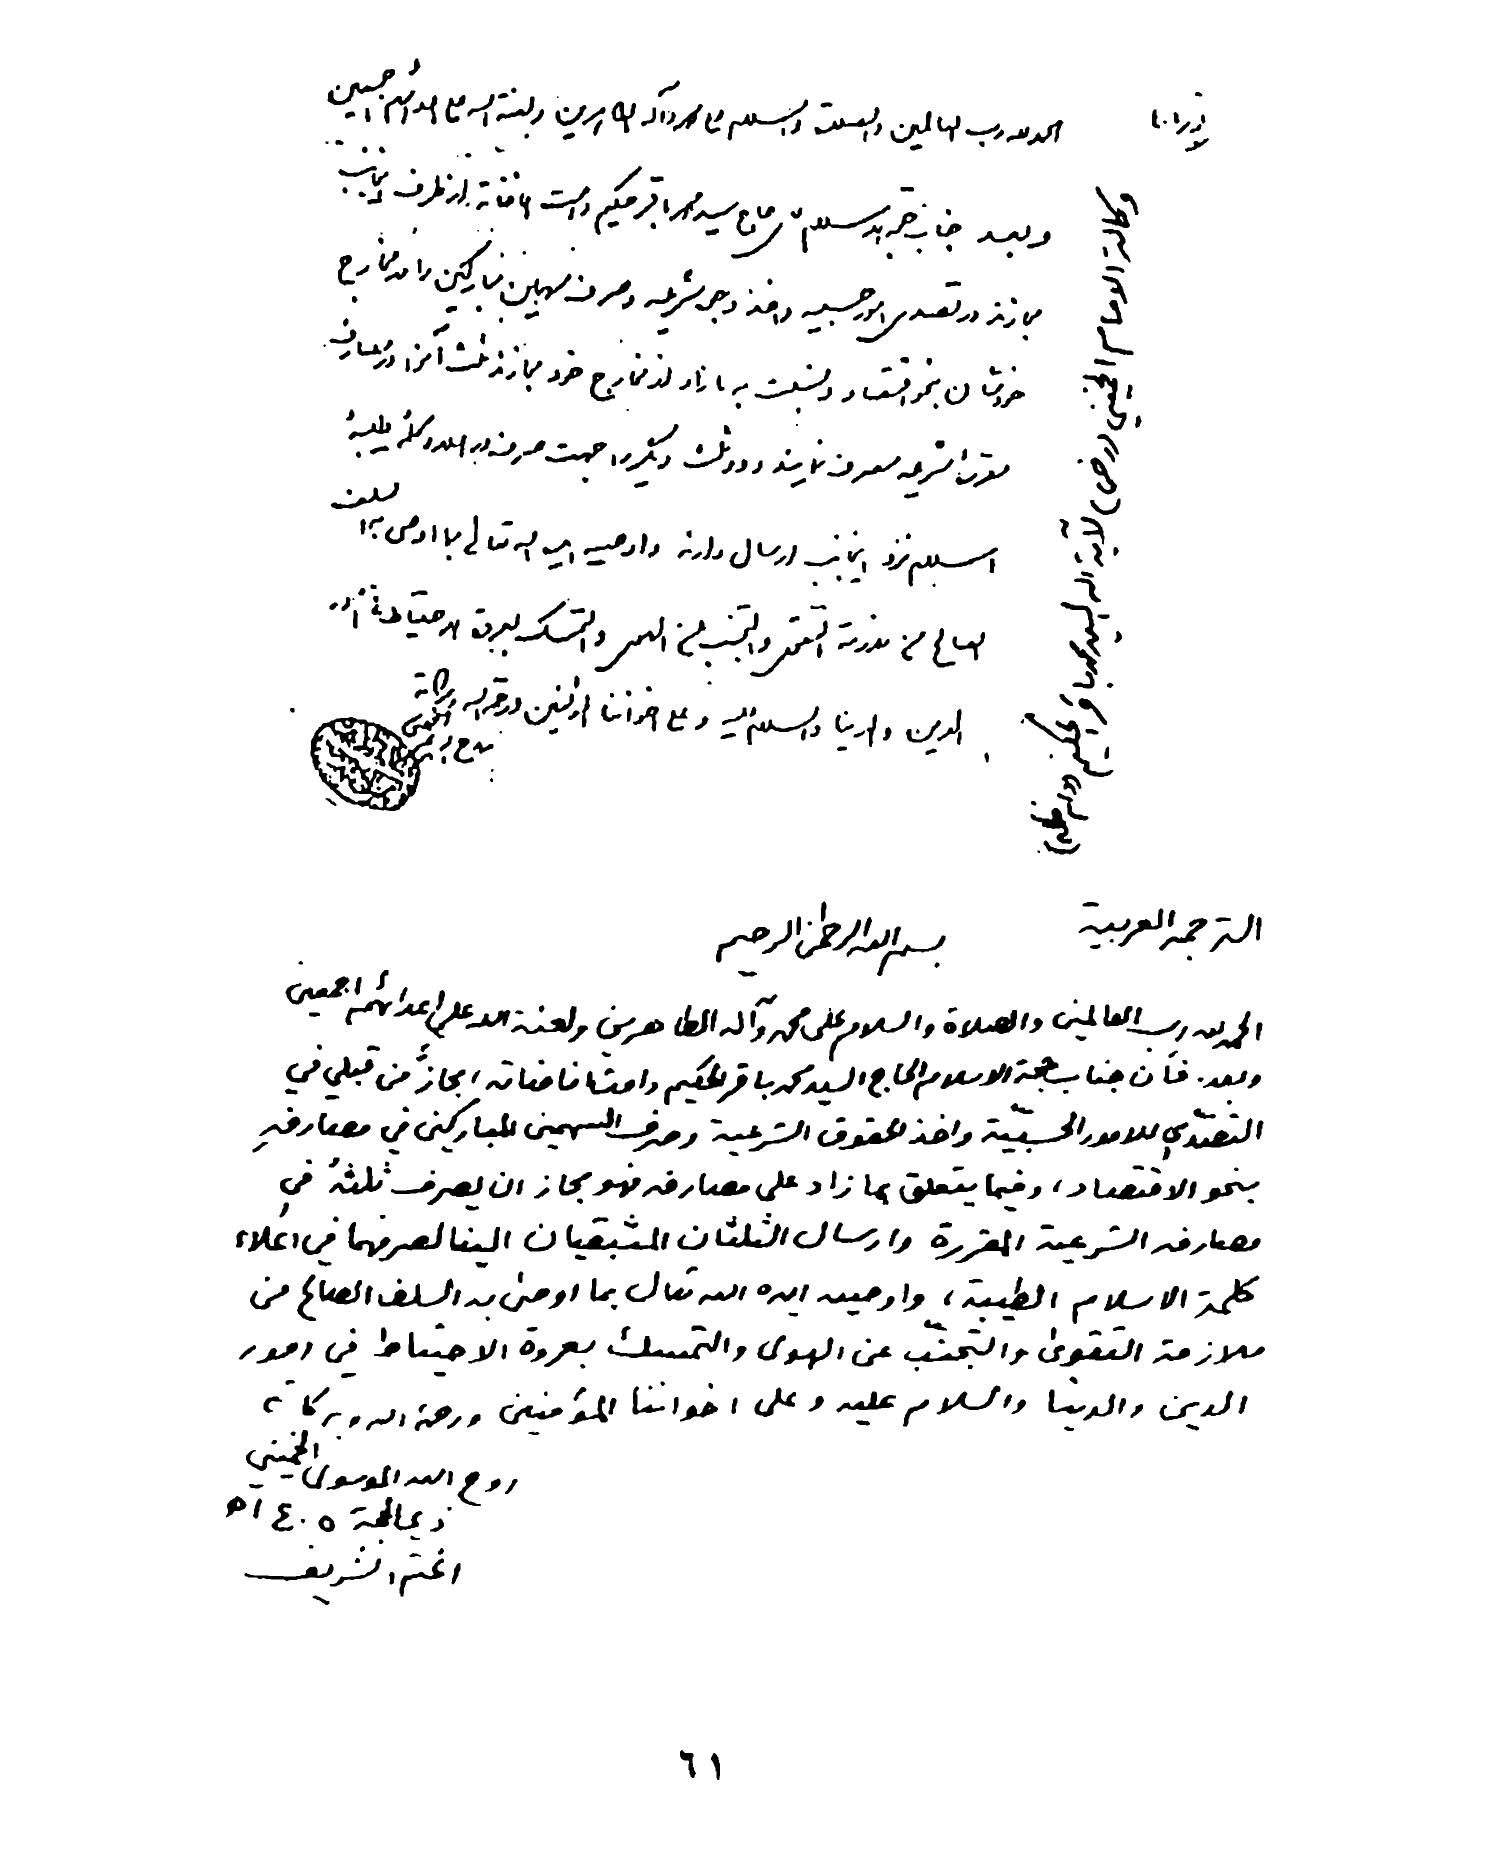 الحمد لله رب العالمين والصلوة والسلام على محمد وآله الطاهرين ولعنة الله على اعدائهم اجمعين
وبعد جناب حجة الاسلام آقاى حاج سيد محمد باقر حكيم دامت افاضاته از طرف اينجانب
مجازند در تصدى امور حسبيه واخذ وجوه شرعيه وصرف سهمين مباركين را در مخارج
خودشان بنحو اقتصاد ونسبت به مازاد از مخارج خود مجازند ثلث آنرا در مصارف
مقرره شرعيه مصرف نمايند ودو ثلث ديگر را جهت صرف در اعلاء كلمه طيبه
اسلام نزد اينجانب ارسال دارند واوصيه ايده الله تعالى بما اوصى به السلف
الصالح من ملازمة التقوى والتجنب عن الهوى والتمسك بعروة الاحتياط في امور
الدين والدنيا والسلام عليه وعلى اخواننا المؤمنين ورحمة الله وبركاته
روح الله الموسوى الخمينى
وكالة الامام الخميني (رض) لآية الله السيد محمد باقر الحكيم (دام ظله)
الترجمة العربية
بسم الله الرحمن الرحيم
الحمد لله رب العالمين والصلاة والسلام على محمد وآله الطاهرين ولعنة الله على اعدائهم اجمعين
وبعد. فأن جناب حجة الاسلام الحاج السيد محمد باقر الحكيم دامت افاضاته، مجازٌ من قبلي في
التصدّي للامور الحسبيّة واخذ الحقوق الشرعية وصرف السهمين المباركين في مصارفهِ
بنحو الاقتصاد، وفيما يتعلق بما زاد على مصارفه فهو مجاز ان يصرف ثلثهُ في
مصارفه الشرعية المقررة وارسال الثلثان المتبقيان الينا لصرفهما في اعلاء
كلمة الاسلام الطيبة، واوصيه ايده الله تعالى بما اوصىٰ به السلف الصالح من
ملازمة التقوىٰ والتجنّب عن الهوى والتمسك بعروة الاحتياط في امور
الدين والدنيا والسلام عليه وعلى اخواننا المؤمنين ورحمة الله وبركاته
روح الله الموسوي الخميني
ذي الحجة ١٤٠٥ هـ
الختم الشريف
٦١